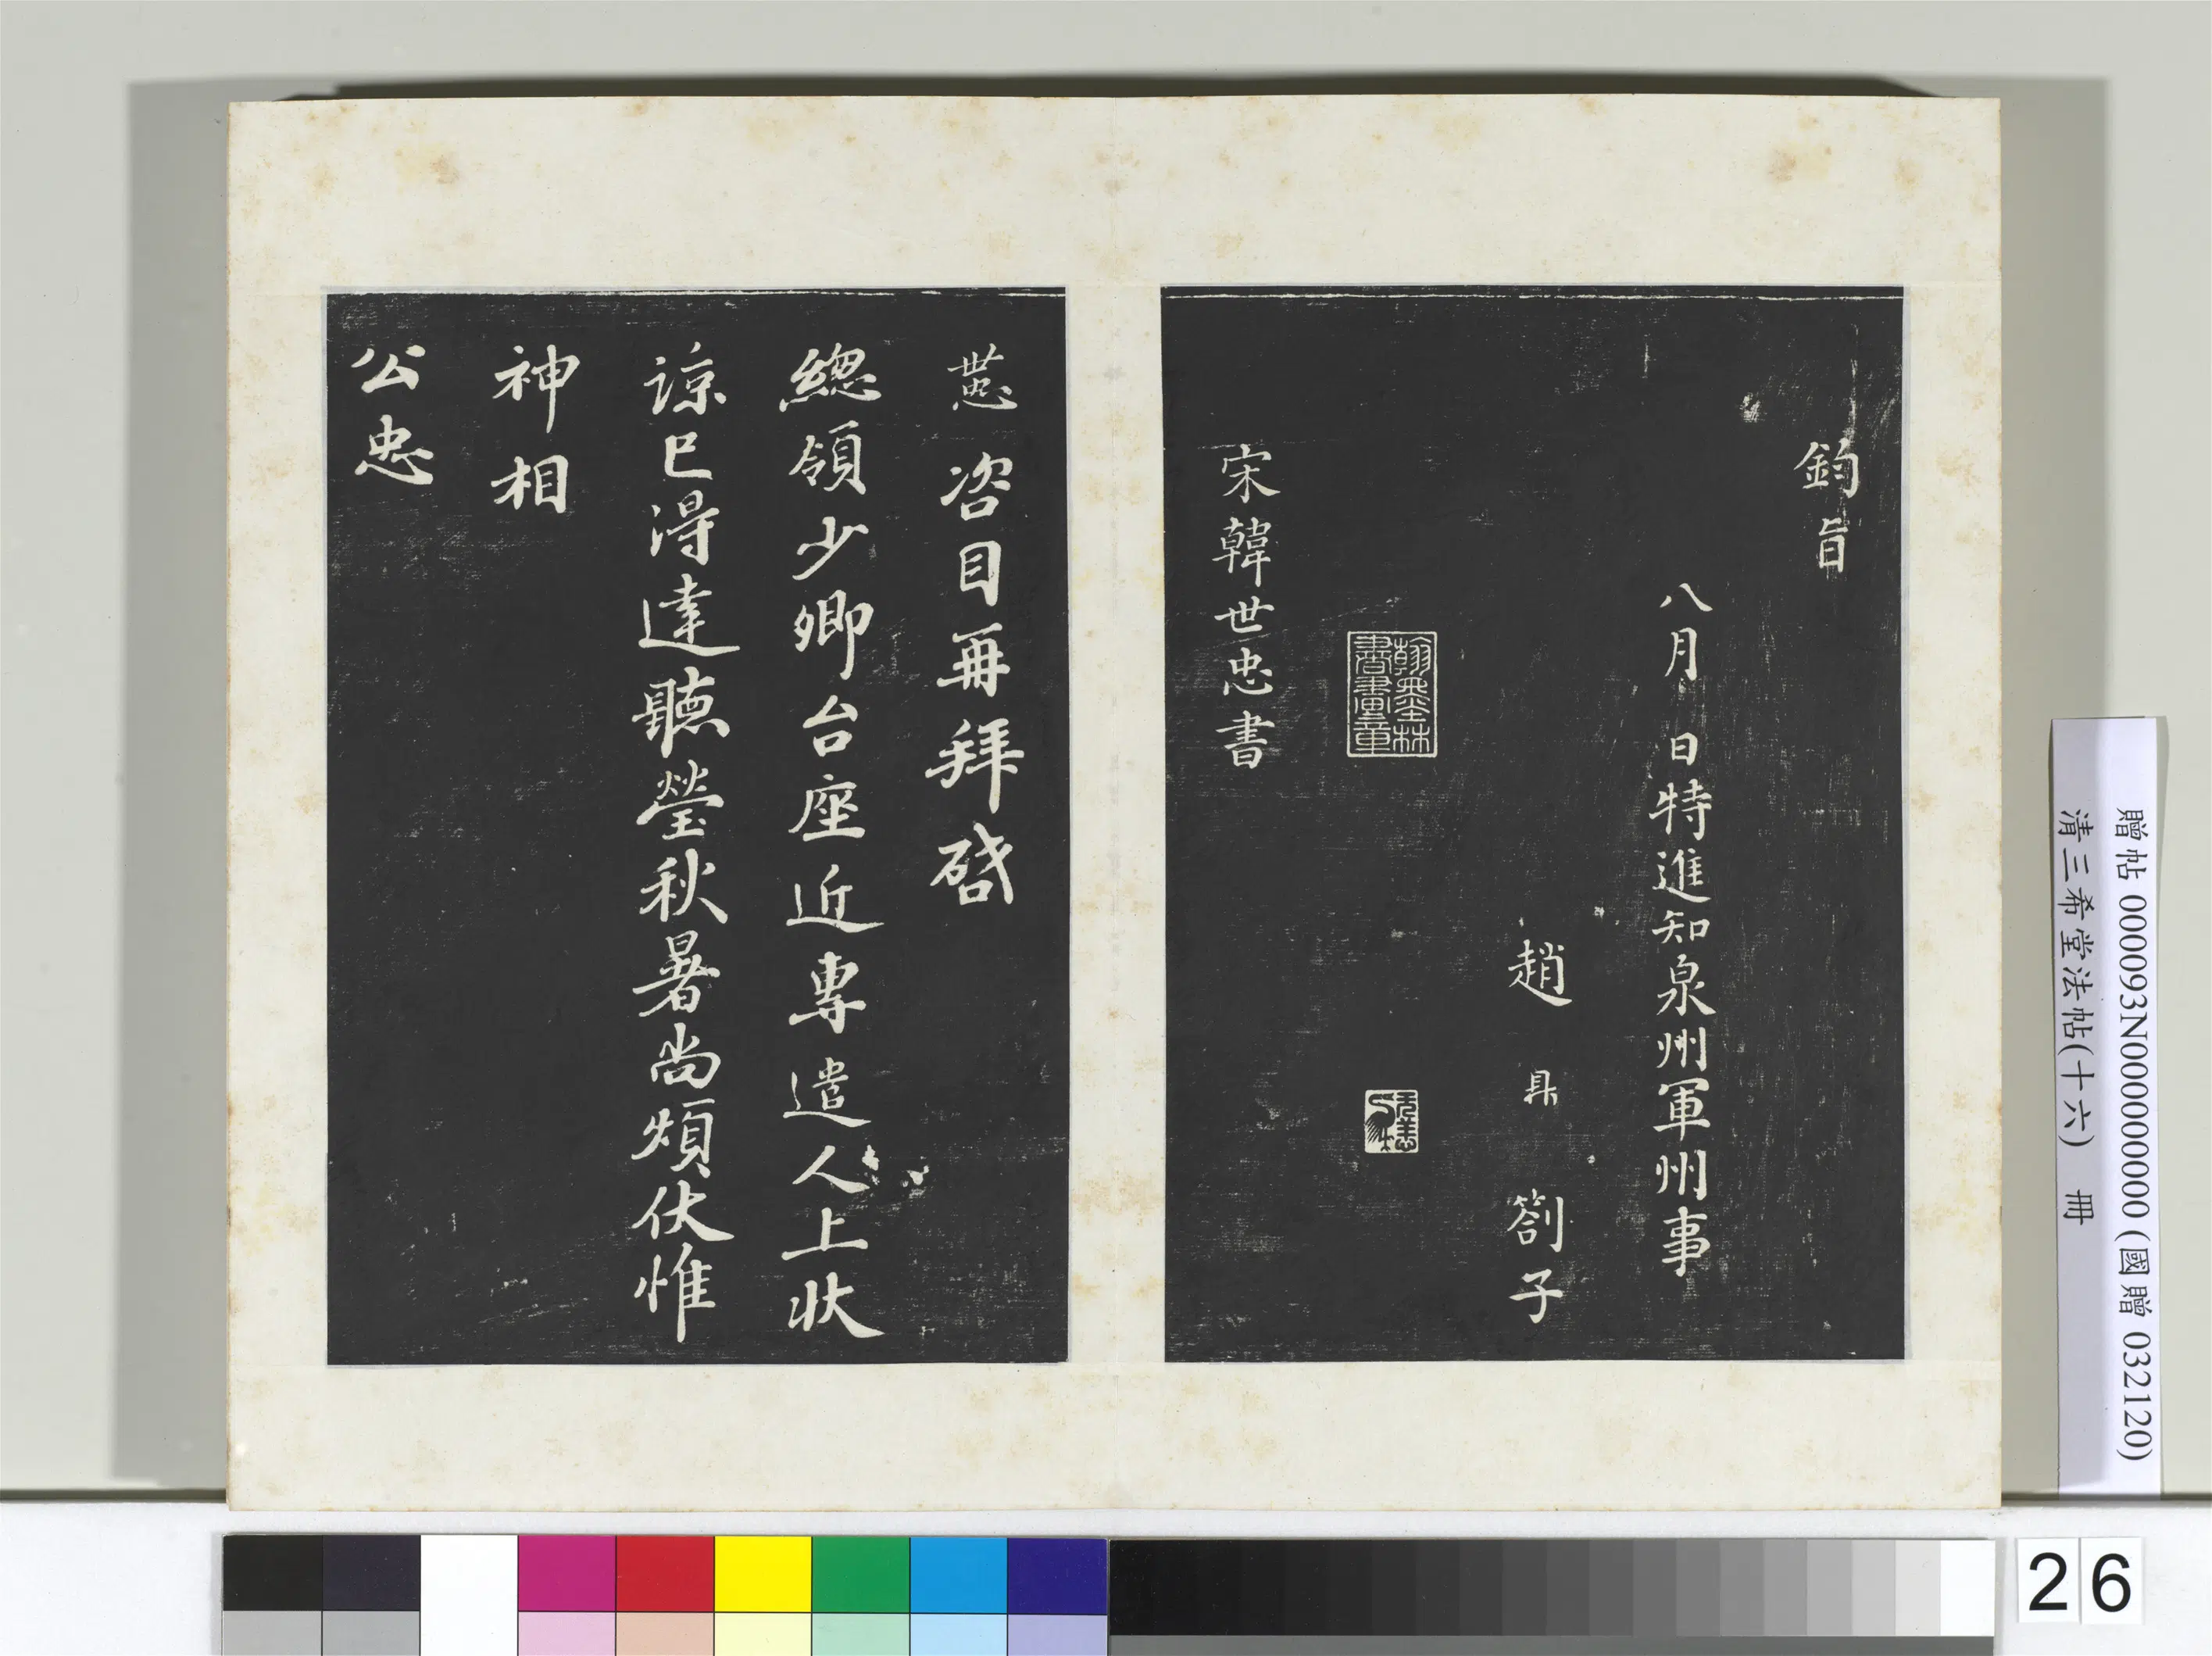 鈞旨
八月 日特進知泉州軍州事
趙鼎劄子
翰墨林書畫章
宋韓世忠書
世忠咨目再拜啓
總領少卿台座近專遣人上狀
諒已得達聽瑩秋暑尚煩伏惟
神相
公忠
贈帖 000093N000000000 (國贈 032120)
清三希堂法帖(十六) 冊
26